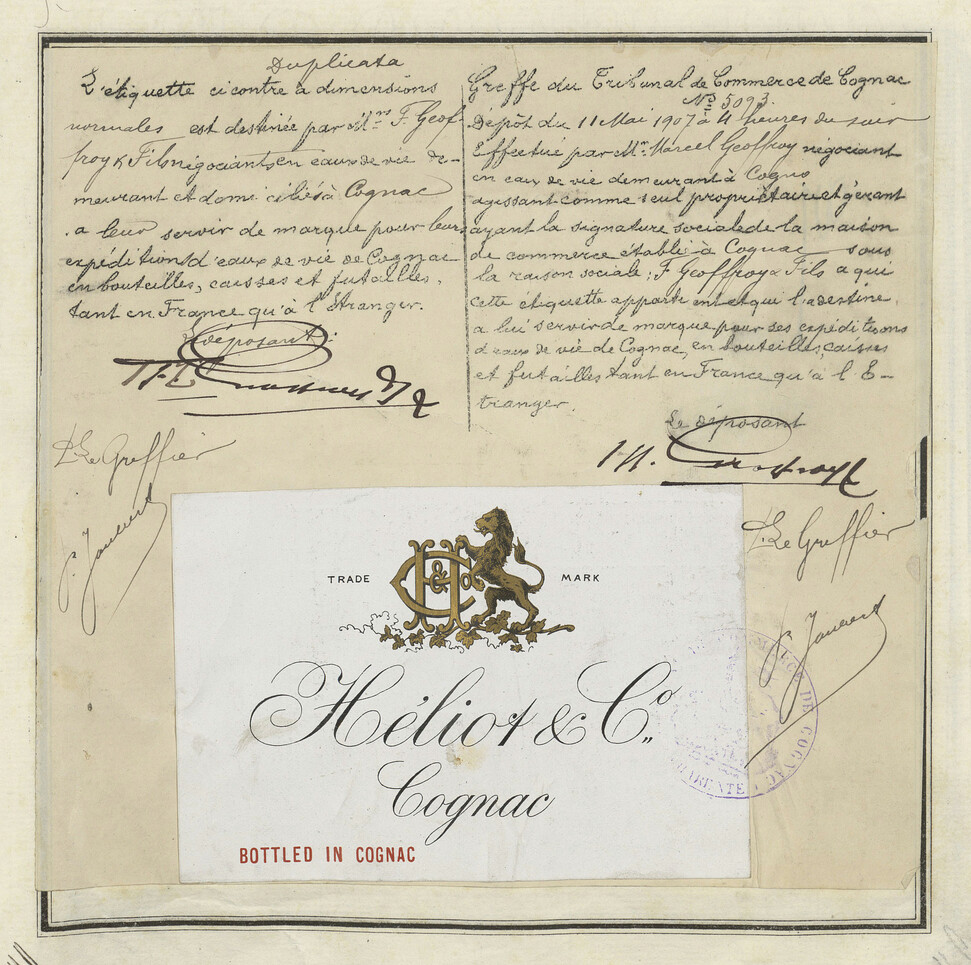 Duplicata
L'étiquette ci contre à dimensions
normales est destinée par Mrs F. Geof-
froy & Fils négociants en eaux de vie de-
meurant et domiciliés à Cognac
a leur servir de marque pour leurs
expéditions d'eaux de vie de Cognac
en bouteilles, caisses et futailles,
tant en France qu'à l'Etranger.
Le déposant:
P. Le Greffier
Greffe du Tribunal de Commerce de Cognac
No 5093.
Dépôt du 11 Mai 1907 à 4 heures du soir
Effectué par Mr. Marcel Geoffroy négociant
en eau de vie demeurant à Cogna
agissant comme seul propriétaire et gérant
ayant la signature sociale de la maison
de commerce établie à Cognac sous
la raison sociale: F. Geoffroy & Fils a qui
cette étiquette appartient et qui l'a destine
a lui servir de marque pour ses expéditions
d'eaux de vie de Cognac, en bouteilles, caisses
et futailles tant en France qu'à l'E-
tranger.
Le déposant
P. Le Greffier
TRADE MARK
H & Co
Héliot & Co.
Cognac
BOTTLED IN COGNAC
DE COGNAC